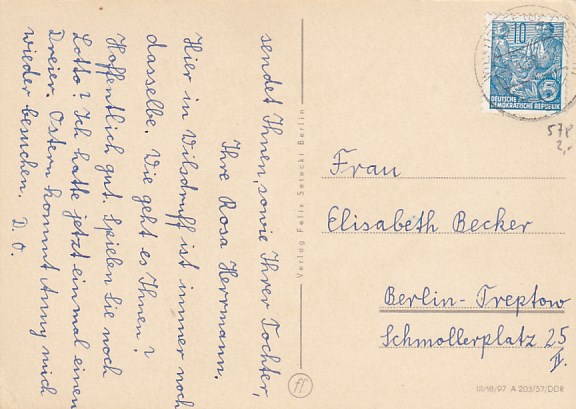 sendet Ihnen, sowie Ihrer Tochter,
Ihre Rosa Herrmann.
Hier in Wilsdruff ist immer noch
dasselbe. Wie geht es Ihnen?
Hoffentlich gut. Spielen Sie noch
Lotto? Ich hatte jetzt einmal einen
Dreier. Ostern kommt Anny mich
wieder besuchen. D. O.
Verlag Felix Setecki Berlin
10
DEUTSCHE
DEMOKRATISCHE REPUBLIK
5
578
2,-
Frau
Elisabeth Becker
Berlin-Treptow
Schmollerplatz 25
II.
III/18/97 A 203/57/DDR